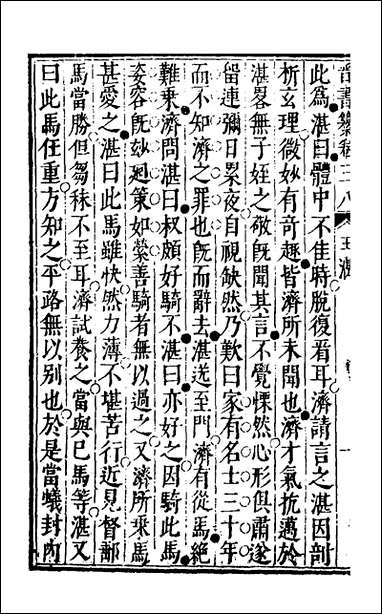 晉書纂卷三八 王湛
此為湛曰體中不佳時脫復看耳濟請言之湛因剖
析玄理微妙有奇趣皆濟所未聞也濟才氣抗邁於
湛畧無子姪之敬旣聞其言不覺慄然心形俱肅遂
留連彌日累夜自視缺然乃歎曰家有名士三十年
而不知濟之罪也旣而辭去湛送至門濟有從馬絕
難乗濟問湛曰叔頗好騎不湛曰亦好之因騎此馬
姿容旣妙廻策如縈善騎者無以過之又濟所乗馬
甚愛之湛曰此馬雖快然力薄不堪苦行近見督郵
馬當勝但芻秣不至耳濟試養之當與已馬等湛又
曰此馬任重方知之平路無以別也於是當蟻封內